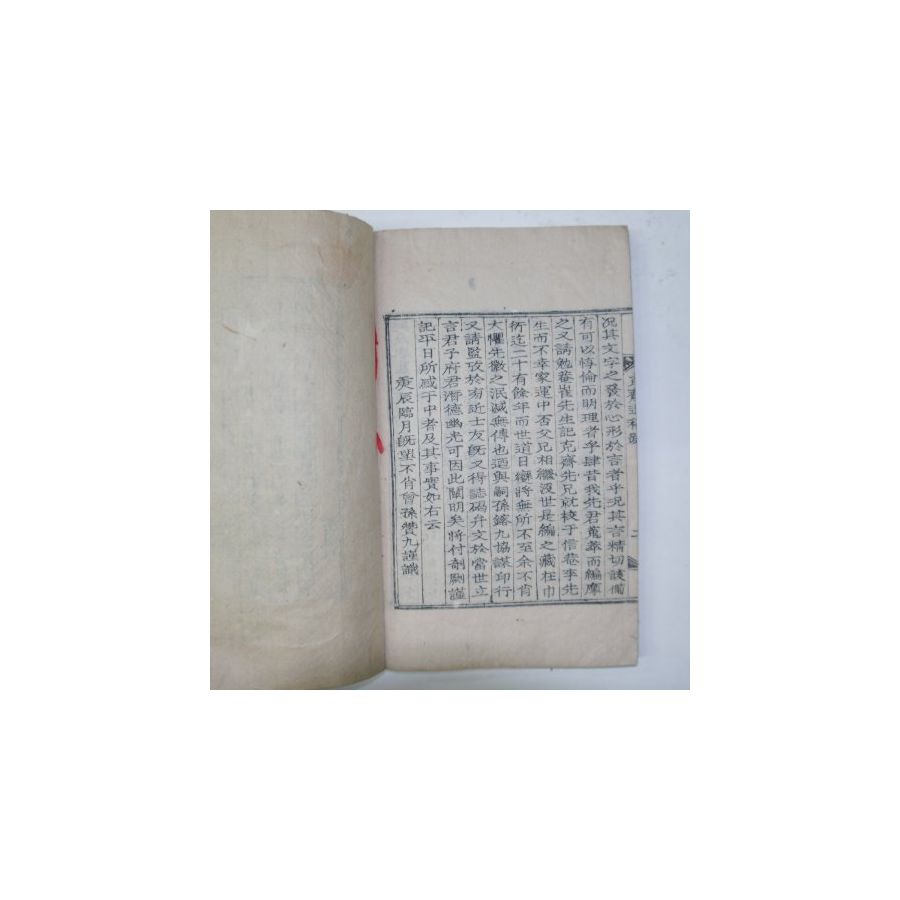 況其文字之發於心形於言者乎況其言精切該備
有可以惇倫而明理者乎肆昔我先君蒐葺而編摩
之又請勉菴崔先生記克齋先兄就校于信菴李先
生而不幸家運中否父兄相繼沒世是編之藏在巾
衍迄二十有餘年而世道日變將無所不至余不肖
大懼先徽之泯滅無傳也迺與嗣孫九協謀印行
又請監攷於有近士友旣又得誌碣弁文於當世立
言君子府君潛德幽光可因此闡明矣將付剞劂謹
記平日所感于中者及其事實如右云
庚辰臨月旣望不肖曾孫贊九謹識
二